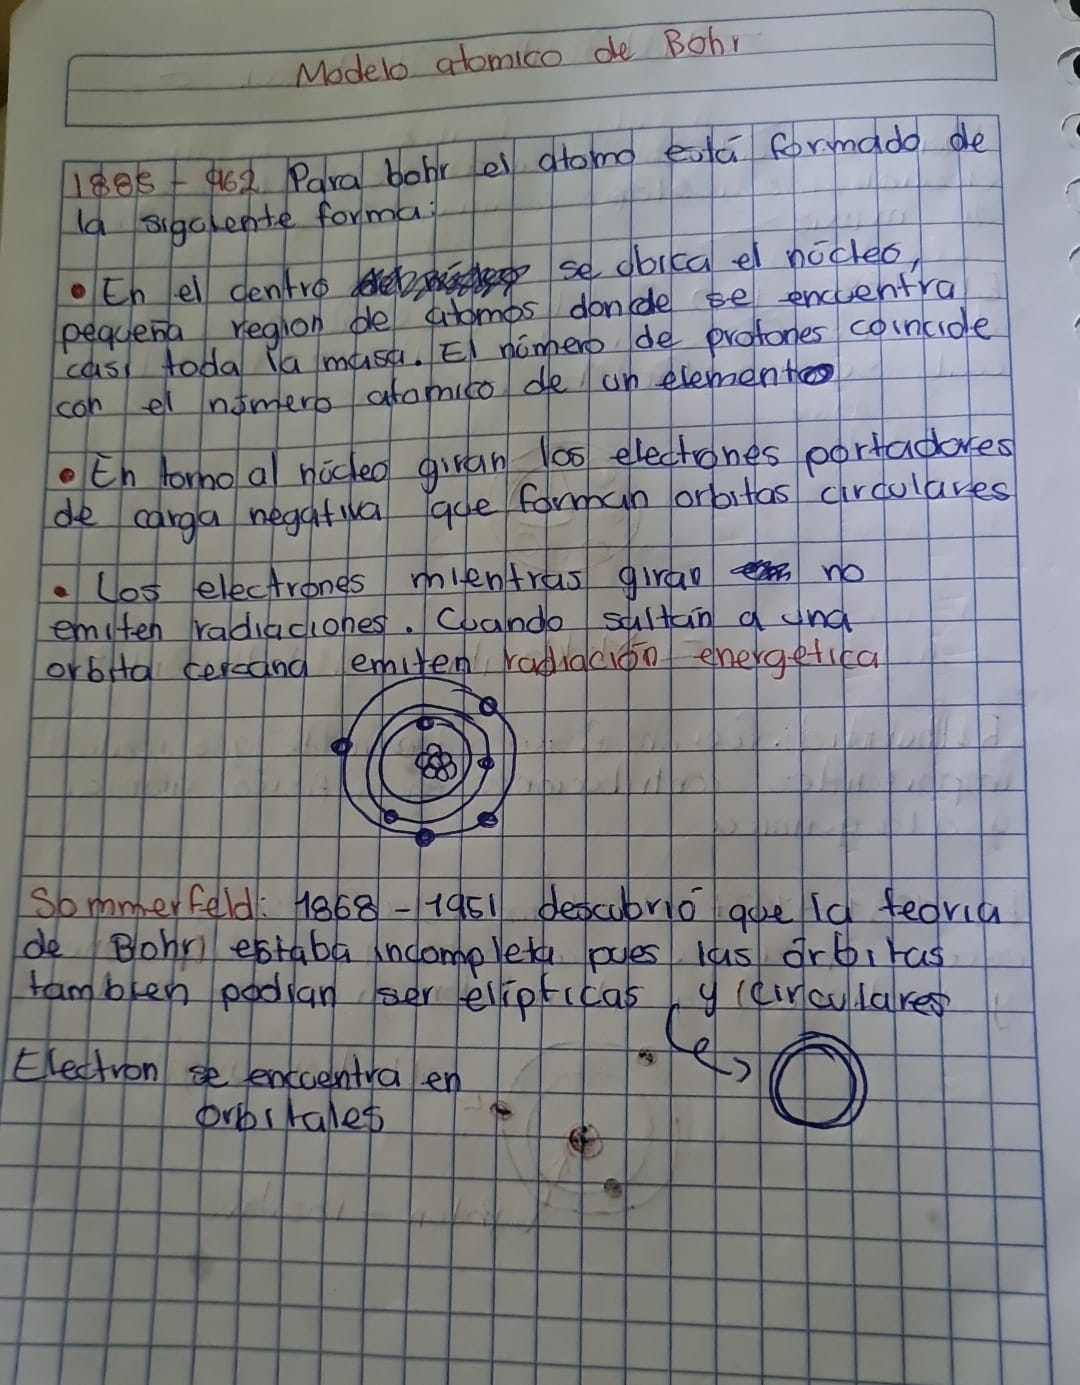 Modelo atomico de Bohr
1885 - 962 Para bohr el atomo está formado de
la siguiente forma:
• En el centro se ubica el núcleo,
pequeña region de atomos donde se encuentra
casi toda la masa. El número de protones coincide
con el número atomico de un elemento
• En torno al núcleo giran los electrones portadores
de carga negativa que forman orbitas circulares
• Los electrones mientras giran no
emiten radiaciones. Cuando saltan a una
orbita cercana emiten radiación energetica
Sommerfeld: 1868 - 1951 descubrió que la teoria
de Bohr estaba incompleta pues las órbitas
tambien podian ser elipticas y circulares
Electron se encuentra en
orbitales